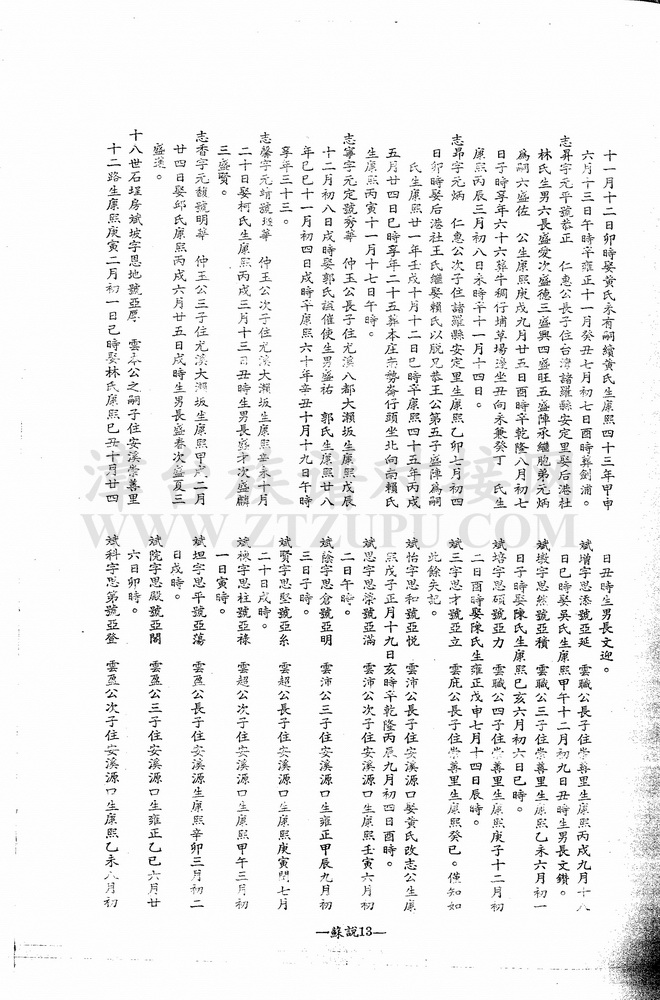 十一月十二日卯時娶黃氏未有嗣續黃氏生康熙四十三年甲申
六月十三日午時卒雍正十一月癸丑七月初七日酉時葬劍浦。
志昇字元平號恭正　仁惠公長子住台灣諸羅縣安定里娶后港社
林氏生男六長盛愛次盛德三盛興四盛旺五盛陣承繼胞弟元炳
為嗣六盛佐　公生康熙庚戌九月廿五日酉時卒乾隆八月初七
日子時享年六十六葬牛稠仔埔草場邊坐丑向未兼癸丁　氏生
康熙丙辰三月初八日未時卒十一月十四日。
志昂字元炳　仁惠公次子住諸羅縣安定里生康熙乙卯七月初四
日卯時娶后港社王氏繼娶賴氏以脫兄恭王公第五子盛陣為嗣
氏生康熙廿一年壬戌十月十二日巳時卒康熙四十五年丙戌
五月廿四日巳時享年二十五葬本庄無勞崙仔頭坐北向南賴氏
生康熙丙寅十一月十七日午時。
志寧字元定號秀華　仲玉公長子住尤溪八都大瀨坂生康熙戊辰
十二月初八日戌時娶郭氏諴催使生男盛祐　郭氏生康熙廿八
年己巳十一月初四日戌時卒康熙六十年辛丑十月十九日午時
享年三十三。
志馨字元靖號廷華　仲玉公次子住尤溪大瀨坂生康熙辛未十月
二十日娶柯氏生康熙丙戌三月十三日丑時生男長盛才次盛麟
三盛賢。
志香字元馥號明華　仲玉公三子住尤溪大瀨坂生康熙甲戌二月
廿四日娶邱氏康熙丙戌六月廿五日戌時生男長盛春次盛夏三
盛遠。
十八世石埕房斌坡字思地號亞厚　雲本公之嗣子住安溪崇善里
十二路生康熙庚寅二月初一日巳時娶林氏康熙己丑十月廿四
日丑時生男長文迎。
斌增字思添號亞延　雲職公長子住崇善里生康熙丙戌九月十八
日巳時娶吳氏生康熙甲午十二月初九日丑時生男長文鑽。
斌墩字思然號亞積　雲職公三子住崇善里生康熙乙未六月初一
日子時娶陳氏生康熙己亥六月初六日巳時。
斌培字思碩號亞力　雲職公四子住崇善里生康熙庚子十二月初
二日酉時娶陳氏生雍正戊申七月十四日辰時。
斌三字思才號亞立　雲庇公長子住崇善里生康熙癸巳。僅知如
此餘失記。
斌怡字思和號亞悅　雲沛公長子住安溪源口娶黃氏改志公生康
熙戊子正月十九日亥時卒乾隆丙辰九月初四日酉時。
斌思字思榮號亞滿　雲沛公次子住安溪源口生康熙壬寅六月初
二日午時。
斌蔭字思倉號亞明　雲沛公三子住安溪源口生雍正甲辰九月初
三日子時。
斌賢字思堅號亞糸　雲超公長子住安溪源口生康熙庚寅閏七月
二十日戌時。
斌楨字思柱號亞祿　雲超公次子住安溪源口生康熙甲午三月初
一日寅時。
斌坦字思平號亞蕩　雲盈公長子住安溪源生康熙辛卯三月初二
日戌時。
斌院字思殿號亞閣　雲盈公三子住安溪源口生雍正乙巳六月廿
六日卯時。
斌科字思第號亞登　雲盈公次子住安溪源口生康熙乙未八月初
WWW.ZTZUPU.COM
—蘇說13—